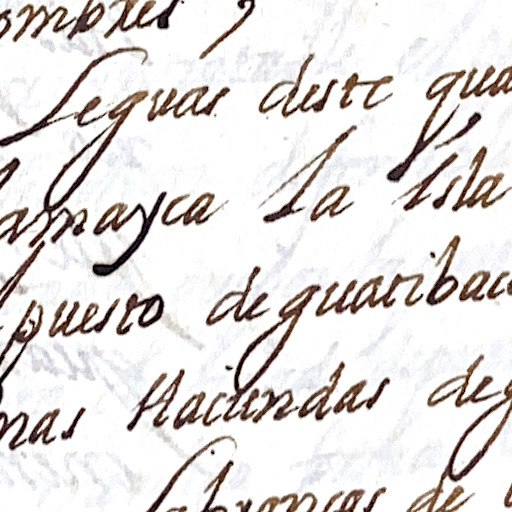 ombres,
Leguas deste gua
Jamayca la isla
puesto de guatibac
nas Haciendas deg
labranças de